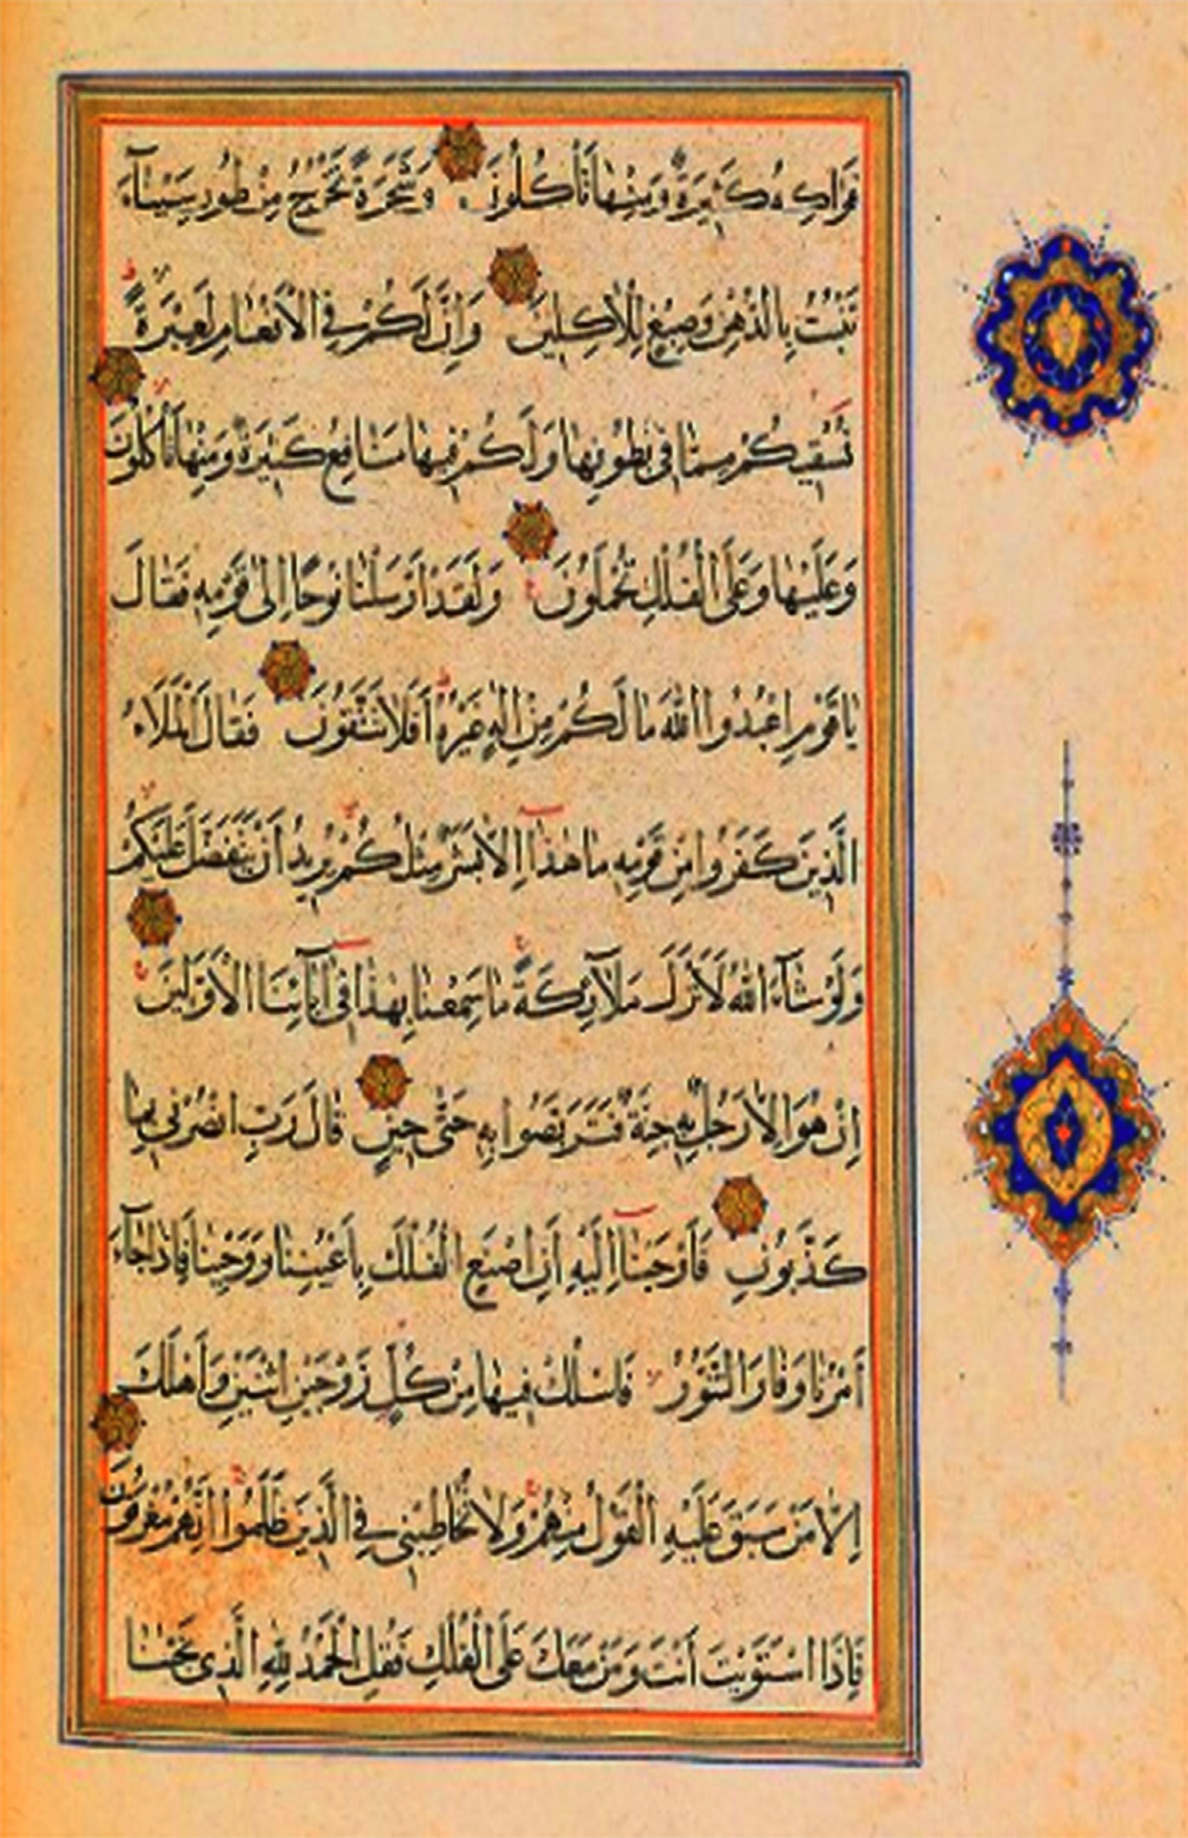 فَوَاكِهُ كَثِيرَةٌ وَمِنْهَا تَأْكُلُونَ وَشَجَرَةً تَخْرُجُ مِنْ طُورِ سَيْنَآءَ
تَنْبُتُ بِالدُّهْنِ وَصِبْغٍ لِلْاٰكِلِينَ وَاِنَّ لَكُمْ فِي الْاَنْعَامِ لَعِبْرَةً
نُسْقِيكُمْ مِمَّا فِي بُطُونِهَا وَلَكُمْ فِيهَا مَنَافِعُ كَثِيرَةٌ وَمِنْهَا تَأْكُلُونَ
وَعَلَيْهَا وَعَلَى الْفُلْكِ تُحْمَلُونَ وَلَقَدْ اَرْسَلْنَا نُوحًا اِلٰى قَوْمِهِ فَقَالَ
يَا قَوْمِ اعْبُدُوا اللّٰهَ مَا لَكُمْ مِنْ اِلٰهٍ غَيْرُهُ اَفَلَا تَتَّقُونَ فَقَالَ الْمَلَاءُ
الَّذِينَ كَفَرُوا مِنْ قَوْمِهِ مَا هٰذَا اِلَّا بَشَرٌ مِثْلُكُمْ يُرِيدُ اَنْ يَتَفَضَّلَ عَلَيْكُمْ
وَلَوْ شَآءَ اللّٰهُ لَاَنْزَلَ مَلَآئِكَةً مَا سَمِعْنَا بِهٰذَا فِي اٰبَآئِنَا الْاَوَّلِينَ
اِنْ هُوَ اِلَّا رَجُلٌ بِهِ جِنَّةٌ فَتَرَبَّصُوا بِهِ حَتّٰى حِينٍ قَالَ رَبِّ انْصُرْنِي بِمَا
كَذَّبُونِ فَاَوْحَيْنَآ اِلَيْهِ اَنِ اصْنَعِ الْفُلْكَ بِاَعْيُنِنَا وَوَحْيِنَا فَاِذَا جَآءَ
اَمْرُنَا وَفَارَ التَّنُّورُ فَاسْلُكْ فِيهَا مِنْ كُلٍّ زَوْجَيْنِ اثْنَيْنِ وَاَهْلَكَ
اِلَّا مَنْ سَبَقَ عَلَيْهِ الْقَوْلُ مِنْهُمْ وَلَا تُخَاطِبْنِي فِي الَّذِينَ ظَلَمُوا اِنَّهُمْ مُغْرَقُونَ
فَاِذَا اسْتَوَيْتَ اَنْتَ وَمَنْ مَعَكَ عَلَى الْفُلْكِ فَقُلِ الْحَمْدُ لِلّٰهِ الَّذِي نَجّٰنَا